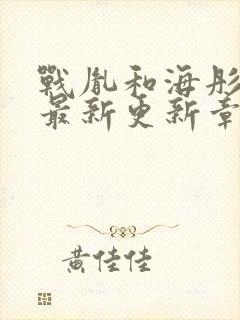 戰胤和海彤
最新更新章
黃佳佳